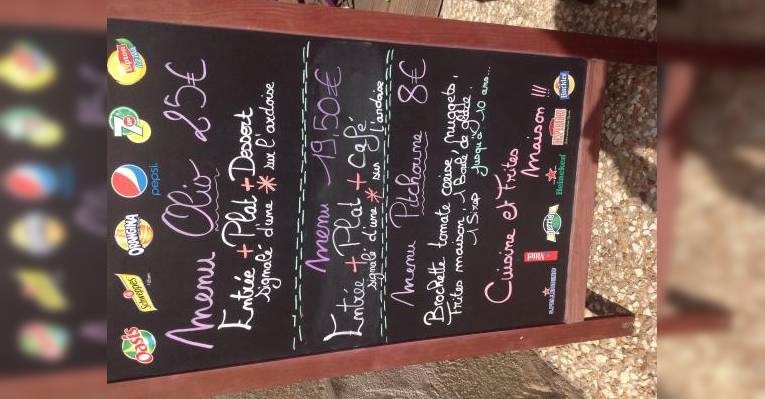 Oasis
Schweppes
ORANGINA
pepsi
7
Lipton
Menu Olio 25€
Entrée + Plat + Dessert
Signalé d'une * sur l'ardoise
Menu 19,50€
Entrée + Plat + Café
signalé d'une * sur l'ardoise
Menu Pitchoune 8€
Brochette tomate cerise, nuggets,
frites maison, Boule de glace
1 Sirop jusqu'à 10 ans...
Cuisine et Frites
Maison !!!
Vittel
Perrier
Heineken